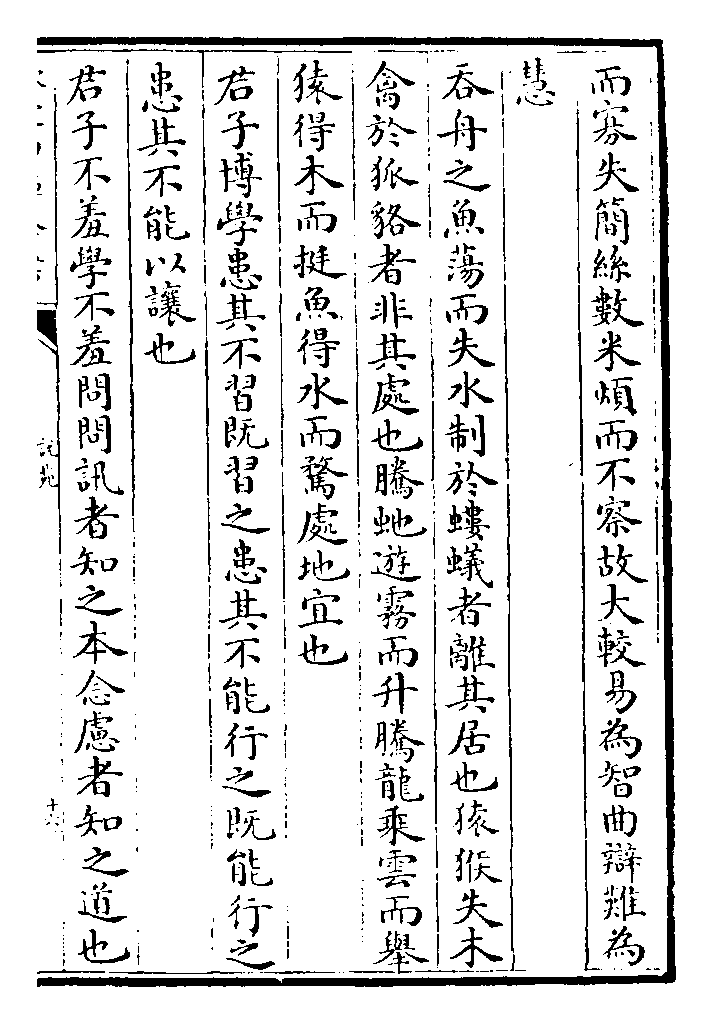 而寡失簡絲數米煩而不察故大較易為智曲辯難為
慧
吞舟之魚蕩而失水制於螻蟻者離其居也猿猴失木
禽於狐貉者非其處也騰虵遊霧而升騰龍乘雲而舉
猿得木而挺魚得水而騖處地宜也
君子博學患其不習既習之患其不能行之既能行之
患其不能以讓也
君子不羞學不羞問問訊者知之本念慮者知之道也
說苑
十六